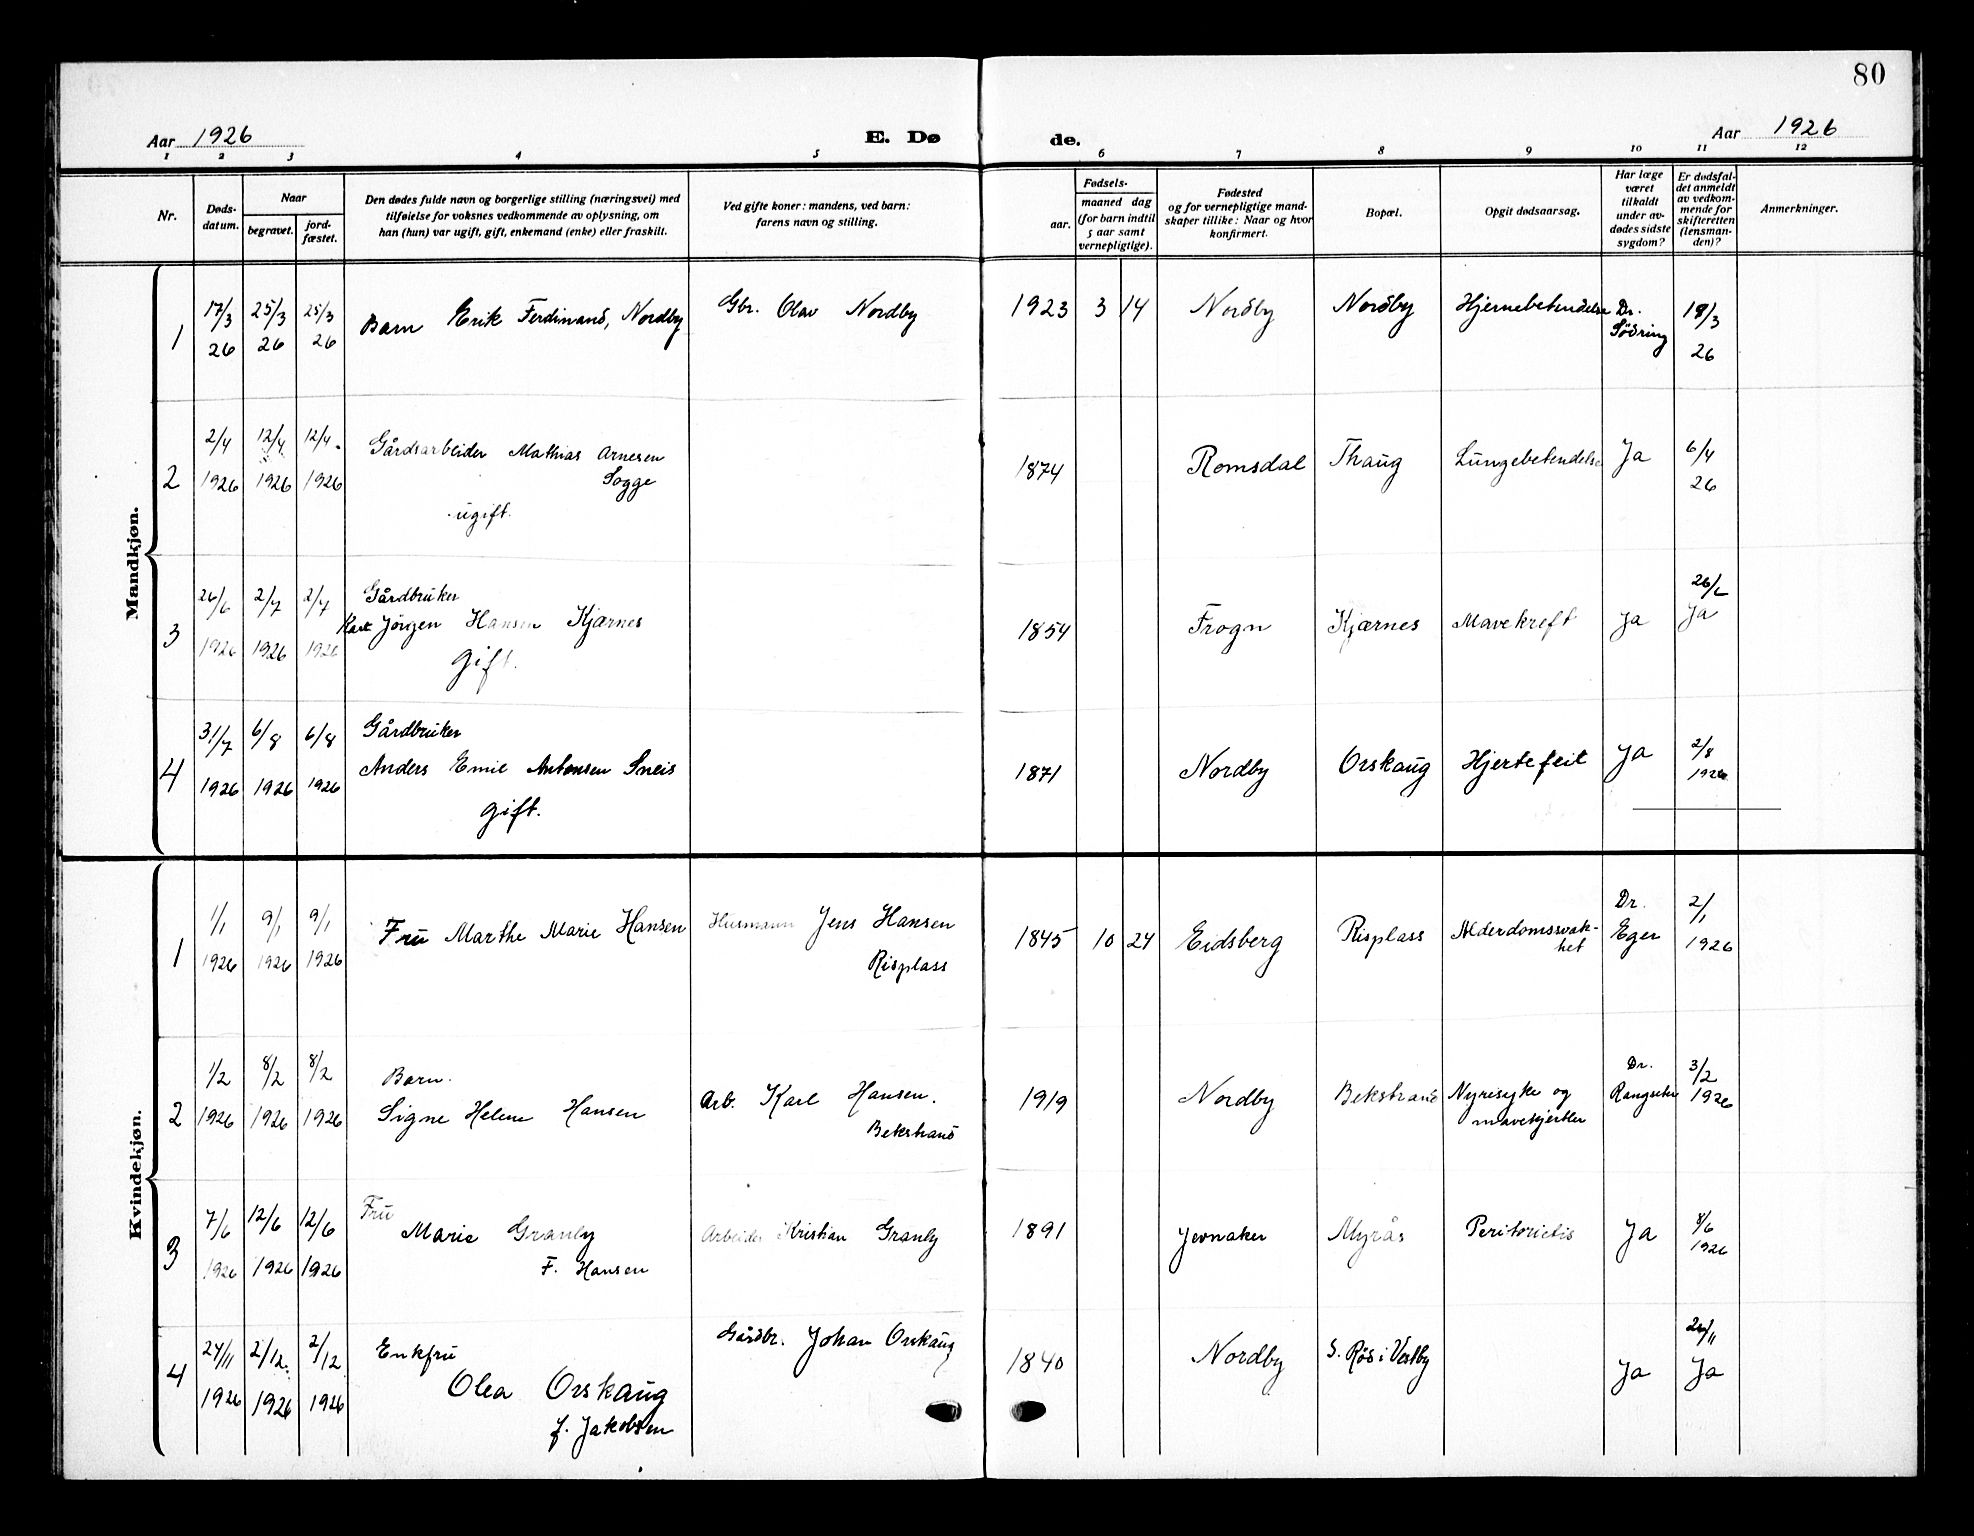 80
Aar 1926
E. Dø
de.
Aar 1926
1 2 3 4 5 6 7 8 9 10 11 12
Nr.
Døds-
datum.
Naar
begravet.
jord-
fæstet.
Den dødes fulde navn og borgerlige stilling (næringsvei) med
tilføielse for voksnes vedkommende av oplysning, om
han (hun) var ugift, gift, enkemand (enke) eller fraskilt.
Ved gifte koner: mandens, ved barn:
farens navn og stilling.
Fødsels-
aar.
maaned dag
(for barn indtil
5 aar samt
vernepligtige).
Fødested
og for vernepligtige mand-
skaper tillike: Naar og hvor
konfirmert.
Bopæl.
Opgit dødsaarsag.
Har læge
været
tilkaldt
under av-
dødes sidste
sygdom?
Er dødsfal-
det anmeldt
av vedkom-
mende for
skifteretten
(lensman-
den)?
Anmerkninger.
Mandkjøn.
1
17/3
26
25/3
26
25/3
26
Barn Erik Ferdinand, Nordby
Gbr. Olav Nordby
1923 3 14
Nordby
Nordby
Hjernebetendelse
Dr.
Södring
18/3
26
2
2/4
1926
12/4
1926
12/4
1926
Gårdsarbeider Mathias Arnesen
Sogge
ugift.
1874
Romsdal
Thaug
Lungebetendelse
Ja
6/4
26
3
26/6
1926
2/7
1926
2/7
1926
Gårdbruker
Karl Jörgen Hansen Kjærnes
gift.
1854
Frogn
Kjærnes
Mavekreft
Ja
26/6
Ja
4
31/7
1926
6/8
1926
6/8
1926
Gårdbruker
Anders Emil Antonsen Sneis
gift.
1871
Nordby
Orskaug
Hjertefeil
Ja
2/8
1926
Kvindekjøn.
1
1/1
1926
9/1
1926
9/1
1926
Fru Marthe Marie Hansen
Husmann Jens Hansen
Risplass
1845 10 24
Eidsberg
Risplass
Alderdomssvak-
het
Dr.
Eger
2/1
1926
2
1/2
1926
8/2
1926
8/2
1926
Barn.
Signe Helene Hansen
Arb. Karl Hansen.
Bekstrand
1919
Nordby
Bekstrand
Nyresyke og
mavekjertler
Dr.
3/2
1926
3
7/6
1926
12/6
1926
12/6
1926
Fru
Marie Granly
F. Hansen
Arbeider Kristian Granly
1891
Jevnaker
Myrås
Peritonietis
Ja
8/6
1926
4
24/11
1926
2/12
1926
2/12
1926
Enkfru
Olea Orskaug
f. Jakobsen
Gårdbr. Johan Orskaug
1840
Nordby
S. Rös i Vestby
Ja
26/11
Ja